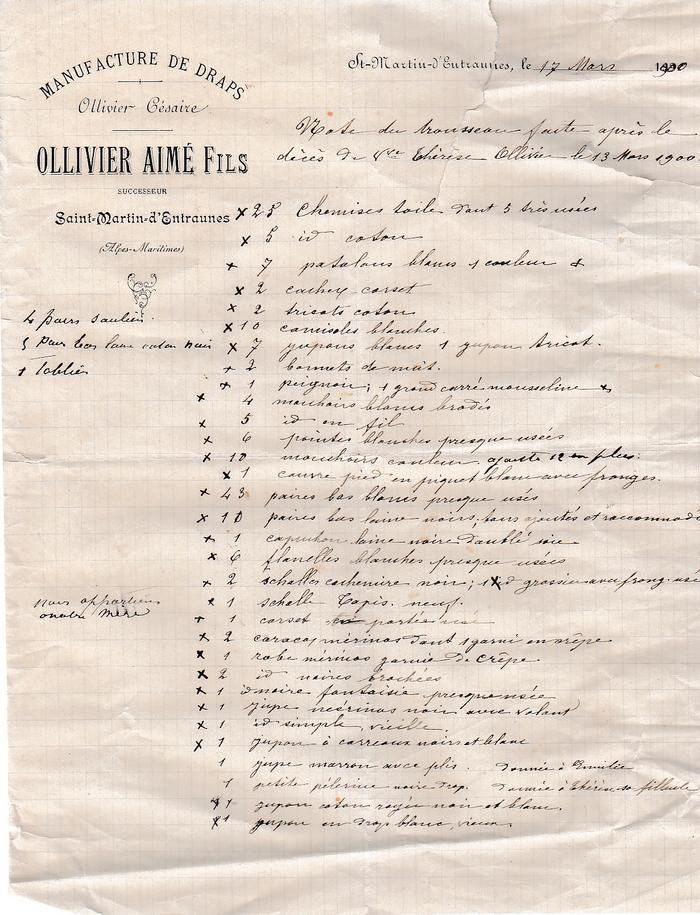 MANUFACTURE DE DRAPS
Ollivier Césaire
OLLIVIER AIMÉ FILS
SUCCESSEUR
Saint-Martin-d'Entraunes
(Alpes-Maritimes)
St-Martin-d'Entraunes, le 17 Mars 1900
Note du trousseau faite après le
décès de Vve Thérèse Ollivier le 13 Mars 1900
x 25 chemises toile dont 5 très usées
x 5 id coton
x 7 patalons blancs 1 couleur x
x 2 cachex corset
x 2 tricots coton
4 pairs soulier
x 10 camisoles blanches
5 pair bas laine coton noir
x 7 jupons blancs 1 jupon tricot.
1 Tablier
x 2 bonnets de nuit.
x 1 peignoir; 1 grand carré mousseline x
x 4 mouchoirs blancs brodés
x 5 id en fil
x 6 pointes blanches presque usées
x 10 mouchoirs couleur, ajouté 12 en plus.
x 1 couvre pied en piquet blanc avec franges.
x 43 paires bas blancs presque usés
x 10 paires bas laine noirs, tous ajoutés et raccommodé
x 1 capuchon laine noire doublé soie
x 6 flanelles blanches presque usées
x 2 schalles cachemire noir; 1 id grossier avec frang. usé
nous appartien
x 1 schalle tapis neuf.
a notre mère
x 1 corset porté usé
x 2 caracos mérinos dont 1 garni en crêpe
x 1 robe mérinos garnie de crêpe
x 2 id noires brochées
x 1 id noire fantaisie presque usée
x 1 jupe mérinos noir avec volant
x 1 id simple, vieille
x 1 jupon à carreaux noirs et blanc
1 jupe marron avec plis. donnée à Emilie
1 petite pélerine noire drap. donnée à Thérèse sa filleule
x 1 jupon coton rayée noir et blanc.
x 1 jupon en drap blanc, vieux